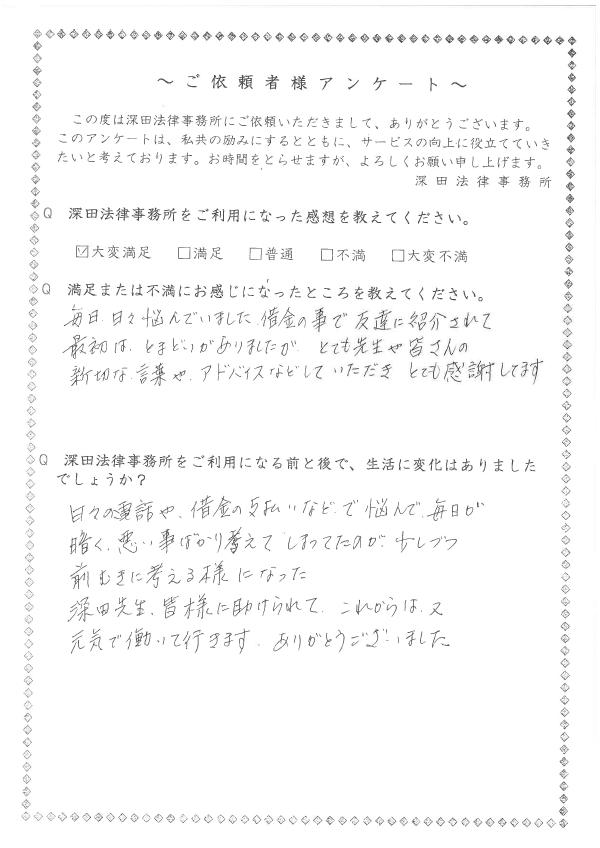 ～ご依頼者様アンケート～
この度は深田法律事務所にご依頼いただきまして、ありがとうございます。
このアンケートは、私共の励みにするとともに、サービスの向上に役立てていき
たいと考えております。お時間をとらせますが、よろしくお願い申し上げます。
深田法律事務所
Q 深田法律事務所をご利用になった感想を教えてください。
☑大変満足 □満足 □普通 □不満 □大変不満
Q 満足または不満にお感じになったところを教えてください。
毎日、日々悩んでいました、借金の事で友達に紹介されて
最初は、とまどいがありましたが、とても先生や皆さんの
新切な、言葉や、アドバイスなどしていただき とても感謝してます
Q 深田法律事務所をご利用になる前と後で、生活に変化はありました
でしょうか？
日々の電話や、借金の支払いなどで悩んで、毎日が
暗く、悪い事ばかり考えてしまってたのが、少しづつ
前むきに考える様になった
深田先生、皆様に助けられて、これからは、又
元気で働いて行きます。ありがとうございました